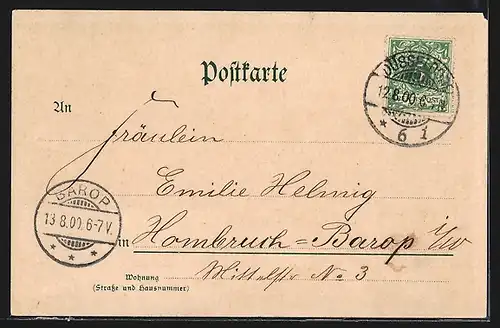 Postkarte
DÜSSELD
12.8.00.6-
* 6 i
An
Fräulein
Emilie Helmig
BAROP
13.8.00.6-7V.
* * *
in Hombruch=Barop i/W
Mittelstr No 3
Wohnung
(Straße und Hausnummer)